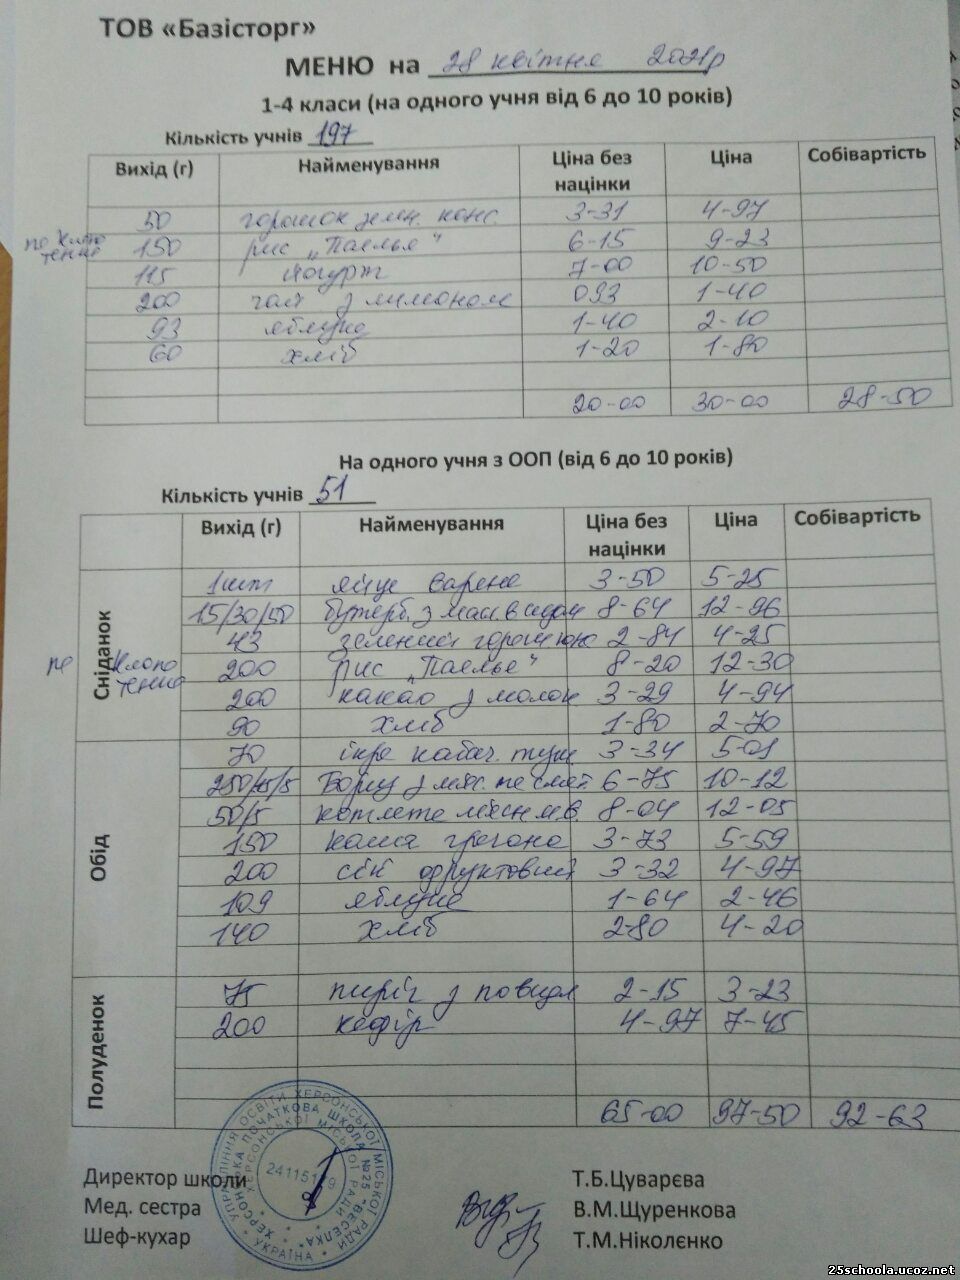 ТОВ «Базісторг»
МЕНЮ на 28 квітня 2021р
1-4 класи (на одного учня від 6 до 10 років)
Кількість учнів 197
Вихід (г) Найменування Ціна без націнки Ціна Собівартість
50 горошок зелен. конс. 3-31 4-97
150 рис „Паелья" 6-15 9-23
115 йогурт 7-00 10-50
200 чай з лимоном 093 1-40
93 яблуко 1-40 2-10
60 хліб 1-20 1-80
20-00 30-00 28-50
На одного учня з ООП (від 6 до 10 років)
Кількість учнів 51
Вихід (г) Найменування Ціна без націнки Ціна Собівартість
Сніданок
1шт яйце варене 3-50 5-25
15/30/50 бутерб. з масл. 8-64 12-96
43 зелений горошок 2-84 4-25
200 рис „Паелья" 8-20 12-30
200 какао з молок 3-29 4-94
90 хліб 1-80 2-70
Обід
70 ікра кабач. туш 3-34 5-01
250/15/5 Борщ з м'яс. та смет. 6-75 10-12
50/5 котлета 8-04 12-05
150 каша 3-73 5-59
200 сік фруктовий 3-32 4-97
109 яблуко 1-64 2-46
140 хліб 2-80 4-20
Полуденок
75 пиріг з повидл 2-15 3-23
200 кефір 4-97 7-45
65-00 97-50 92-63
Директор школи Т.Б.Цуварєва
Мед. сестра В.М.Щуренкова
Шеф-кухар Т.М.Ніколєнко
УПРАВЛІННЯ ОСВІТИ ХЕРСОНСЬКОЇ МІСЬКОЇ РАДИ
УКРАЇНА
25schoola.ucoz.net